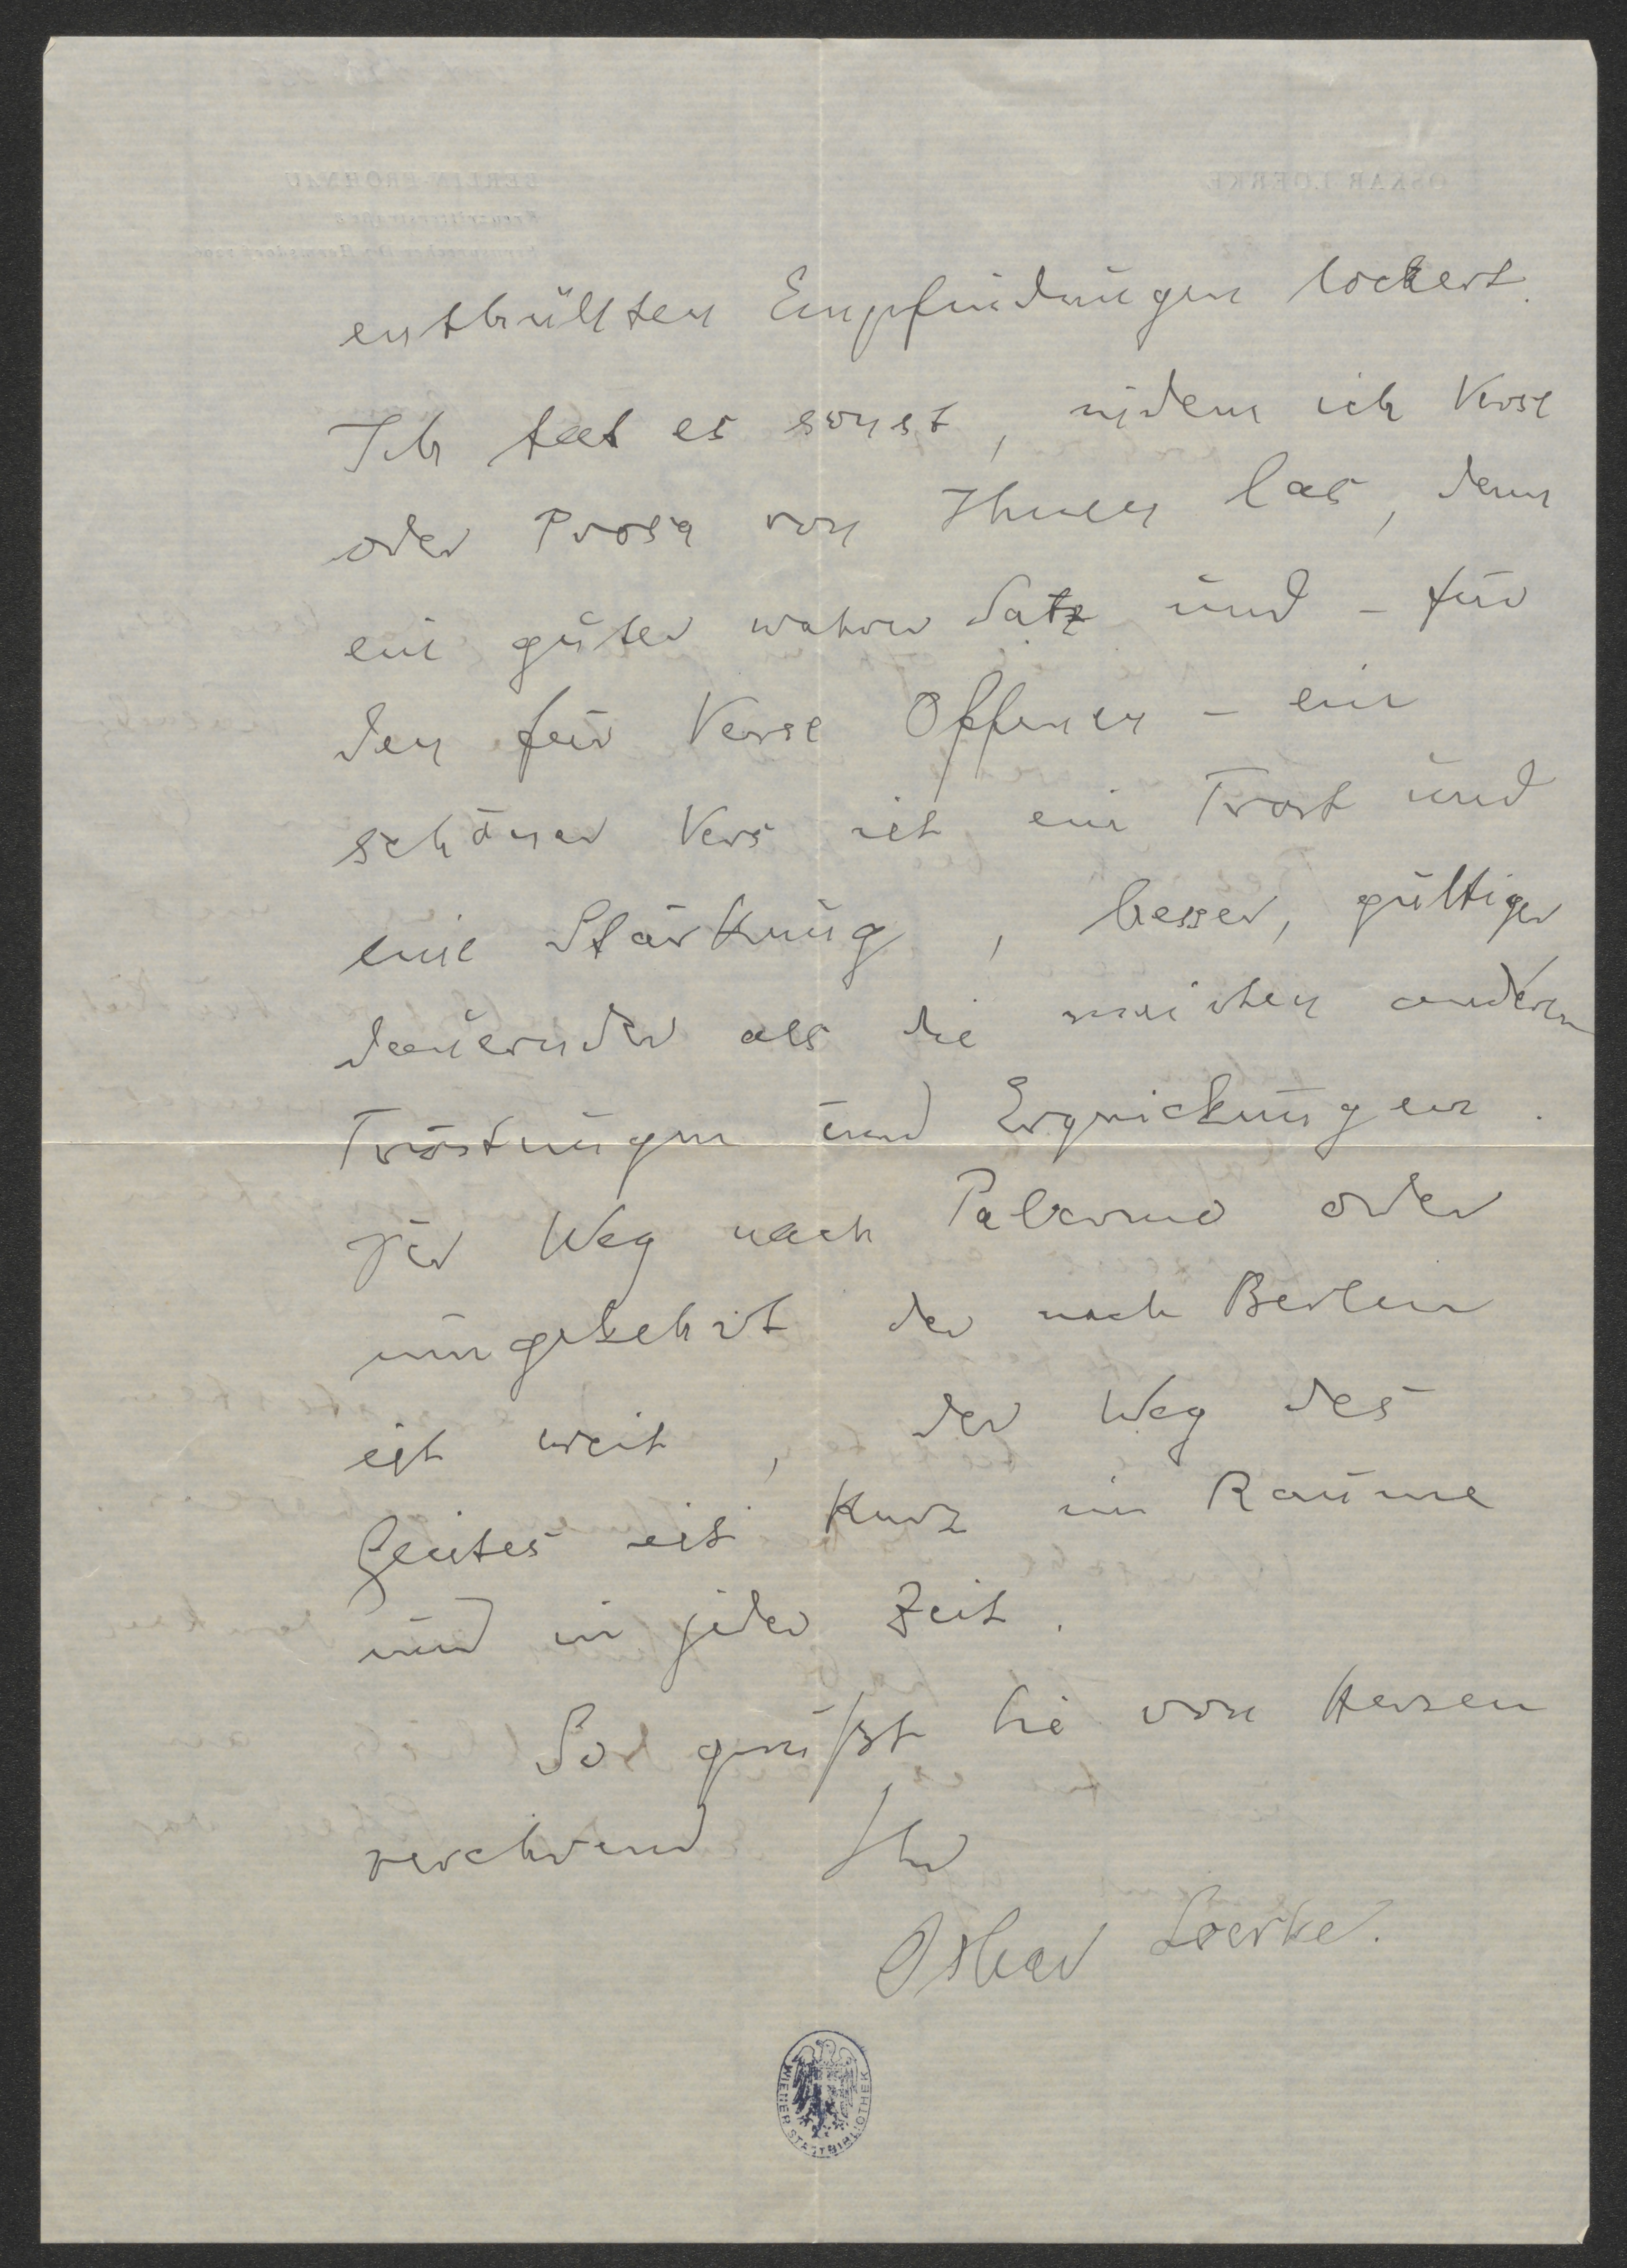 enthüllten Empfindungen lockert.
Ich tat es sonst, indem ich Verse
oder Prosa von Ihnen las, denn
ein guter wahrer Satz und – für
den für Verse Offenen – ein
schöner Vers ist ein Trost und
eine Stärkung, besser, gültiger
dauernder als die meisten anderen
Tröstungen und Erquickungen.
Der Weg nach Palermo oder
umgekehrt der nach Berlin
ist weit, der Weg des
Geistes ist kurz im Raume
und in jeder Zeit.
So grüßt Sie von Herzen
verehrend Ihr
Oskar Loerke.
WIENER STADTBIBLIOTHEK